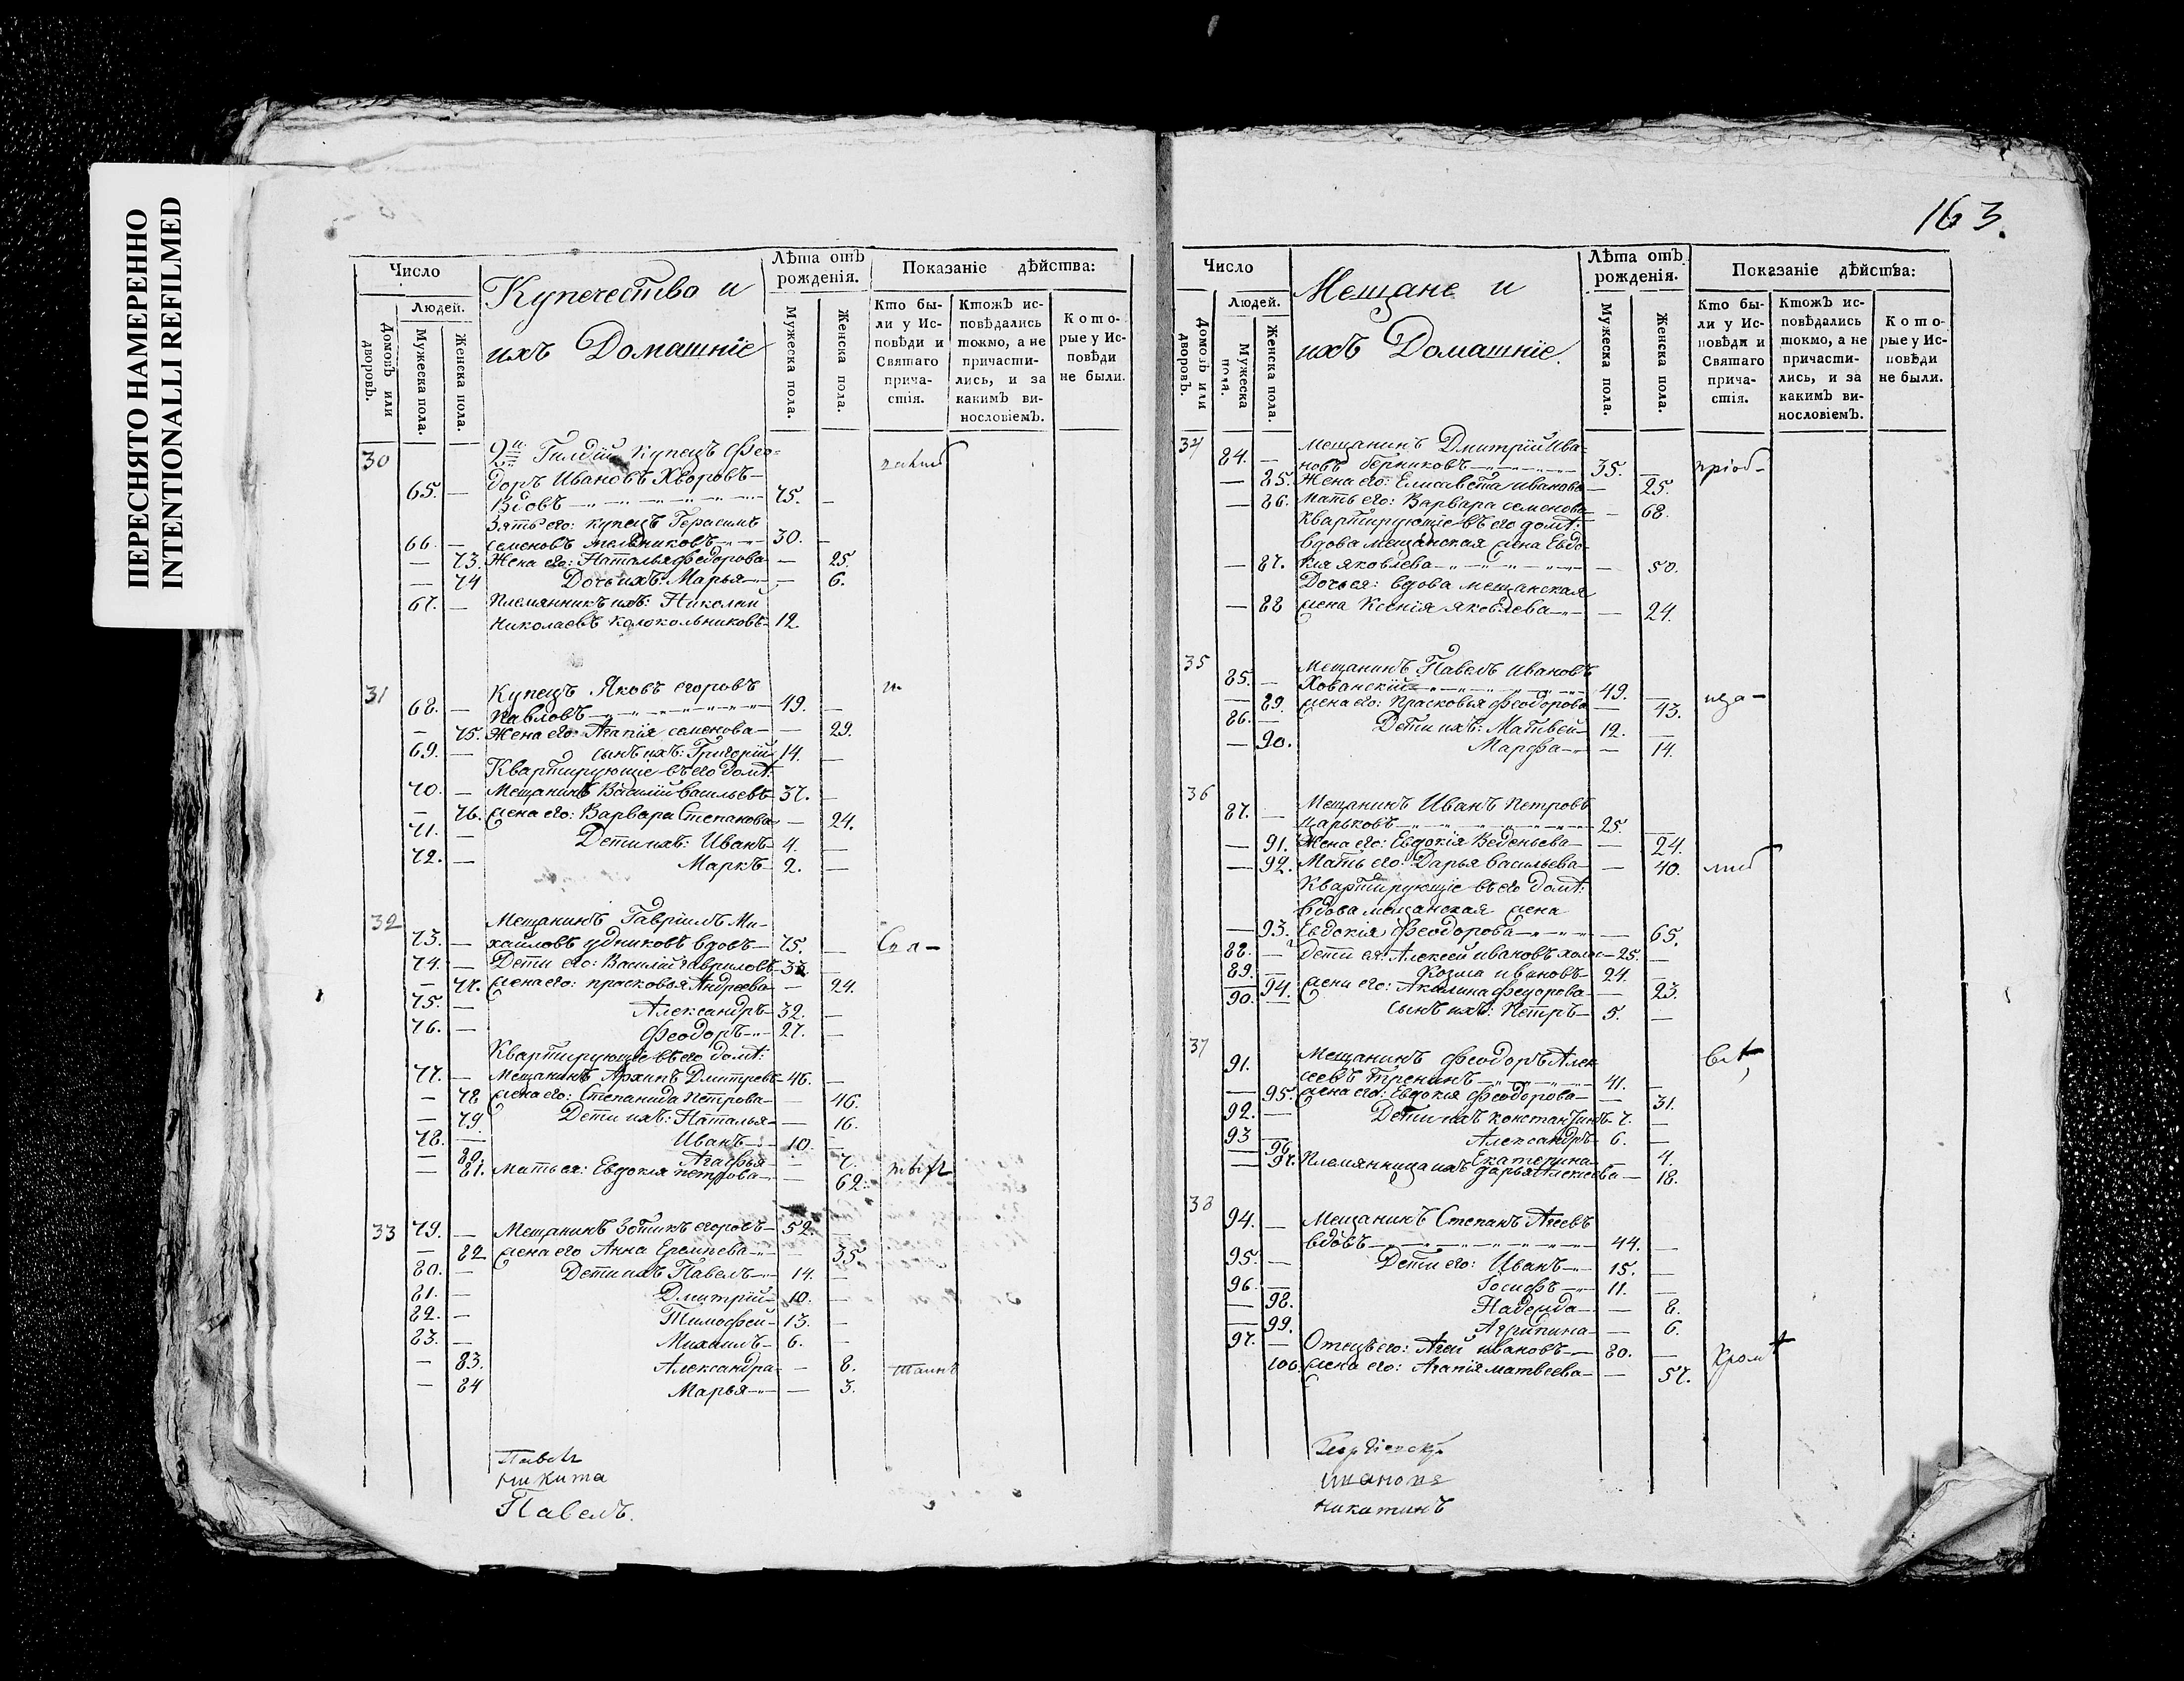 ПЕРЕСНЯТО НАМЕРЕННО
INTENTIONALLI REFILMED
Число
Людей.
Домовъ или дворовъ.
Мужеска пола.
Женска пола.
Купечество и
ихъ Домашніе
Лѣта отъ рожденія.
Мужеска пола.
Женска пола.
Показаніе дѣйства:
Кто бы-
ли у Ис-
повѣди и
Святаго
прича-
стія.
Ктожъ ис-
повѣдались
токмо, а не
причасти-
лись, и за
какимъ ви-
нословіемъ.
Кото-
рые у Ис-
повѣди
не были.
30 Гилдіи Купецъ Фео-
65. — доръ Ивановъ Хворовъ —
Вдовъ — 75. —
Зять его: купецъ Герасимъ
66. — Семеновъ — 30. —
— 73. Жена его: Наталья Федорова — — 25.
— 74 Дочь ихъ: Марья — — 6.
67. — Племянникъ ихъ: Николай
Николаевъ Колокольниковъ — 12.
31 Купецъ Яковъ Егоровъ
68. — Павловъ — 49. —
— 75. Жена его: Агапія Семенова — — 29.
69. — сынъ ихъ: Григорій 14. —
Квартирующіе въ его домѣ:
70. — Мещанинъ Василій Васильевъ — 37. —
— 76. Жена его: Варвара Степанова — 24.
71. — Дети ихъ: Иванъ — 4. —
72. — Маркъ — 2. —
32 Мещанинъ Гавріилъ Ми-
73. — хайловъ Удниковъ вдовъ — 75. —
74. — Дети его: Василій Гавриловъ — 33 —
— 77. Жена его: Прасковья Андреева — — 24.
75. — Александръ — 32. —
76. — Феодоръ — 27. —
Квартирующіе въ его домѣ:
77. — Мещанинъ Архипъ Дмитревъ — 46. —
— 78 Жена его: Степанида Петрова — — 46.
— 79. Дети ихъ: Наталья — — 16.
78. — Иванъ — 10. —
— 80. Агафья — — 7.
— 81. Мать ея: Евдокія Петрова — — 62.
33 79. — Мещанинъ Зотикъ Егоровъ — 52. —
— 82 Жена его Анна Еремеева — — 35.
80. — Дети ихъ Павелъ — 14. —
81. — Дмитрій — 10. —
82. — Тимофей — 13. —
83. — Михаилъ — 6. —
— 83. Александра — — 8.
— 84 Марья — — 3.
Никита
Павелъ.
163.
Число
Людей.
Домовъ или дворовъ.
Мужеска пола.
Женска пола.
Мещане и
ихъ Домашніе.
Лѣта отъ рожденія.
Мужеска пола.
Женска пола.
Показаніе дѣйства:
Кто бы-
ли у Ис-
повѣди и
Святаго
прича-
стія.
Ктожъ ис-
повѣдались
токмо, а не
причасти-
лись, и за
какимъ ви-
нословіемъ.
Кото-
рые у Ис-
повѣди
не были.
34 84. — Мещанинъ Дмитрій Ива-
новъ Герниковъ — 35. — пріоб-
— 85. Жена его: Елисавета Иванова — — 25.
— 86. Мать его: Варвара Семенова — — 68.
Квартирующіе въ его домѣ:
Вдова мещанская жена Евдо-
— 87. кія Яковлева — — 50.
Дочь ея: Вдова мещанская
— 88 жена Ксенія Яковлева — — 24.
35 Мещанинъ Павелъ Ивановъ
85. — Хованскій — 49. —
— 89. Жена его: Прасковья Феодорова — — 43.
86. — Дети ихъ: Матвей — 12. —
— 90. Марфа — — 14.
36 87. — Мещанинъ Иванъ Петровъ
Царьковъ — 25. —
— 91. Жена его: Евдокія Веденьева — — 24.
— 92. Мать его: Дарья Васильева — — 40.
Квартирующіе въ его домѣ:
Вдова мещанская жена
— 93. Евдокія Феодорова — — 65.
88. — Дети ея: Алексей Ивановъ холос — 25. —
89. — Козма Ивановъ — 24. —
— 94. Жена его: Акилина Федорова — — 23.
90. — Сынъ ихъ: Петръ — 5. —
37 91. Мещанинъ Феодоръ Алек
сеевъ Тренинъ — 41. —
— 95. Жена его: Евдокія Феодорова — — 31.
92. — Дети ихъ Константинъ — 7. —
93 — Александръ — 6. —
— 96. Екатерина — — 4.
— 97. Племянница ихъ Дарья Алексеева — — 18.
38 94. — Мещанинъ Степанъ Агеевъ
Вдовъ — 44. —
95. — Дети его: Иванъ — 15. —
96. — Іосифъ — 11. —
— 98. Надежда — — 8.
— 99. Агрипина — — 6.
97. — Отецъ его: Агей Ивановъ — 80. —
100. Жена его: Агапія Матвеева — — 57.
Никитинъ